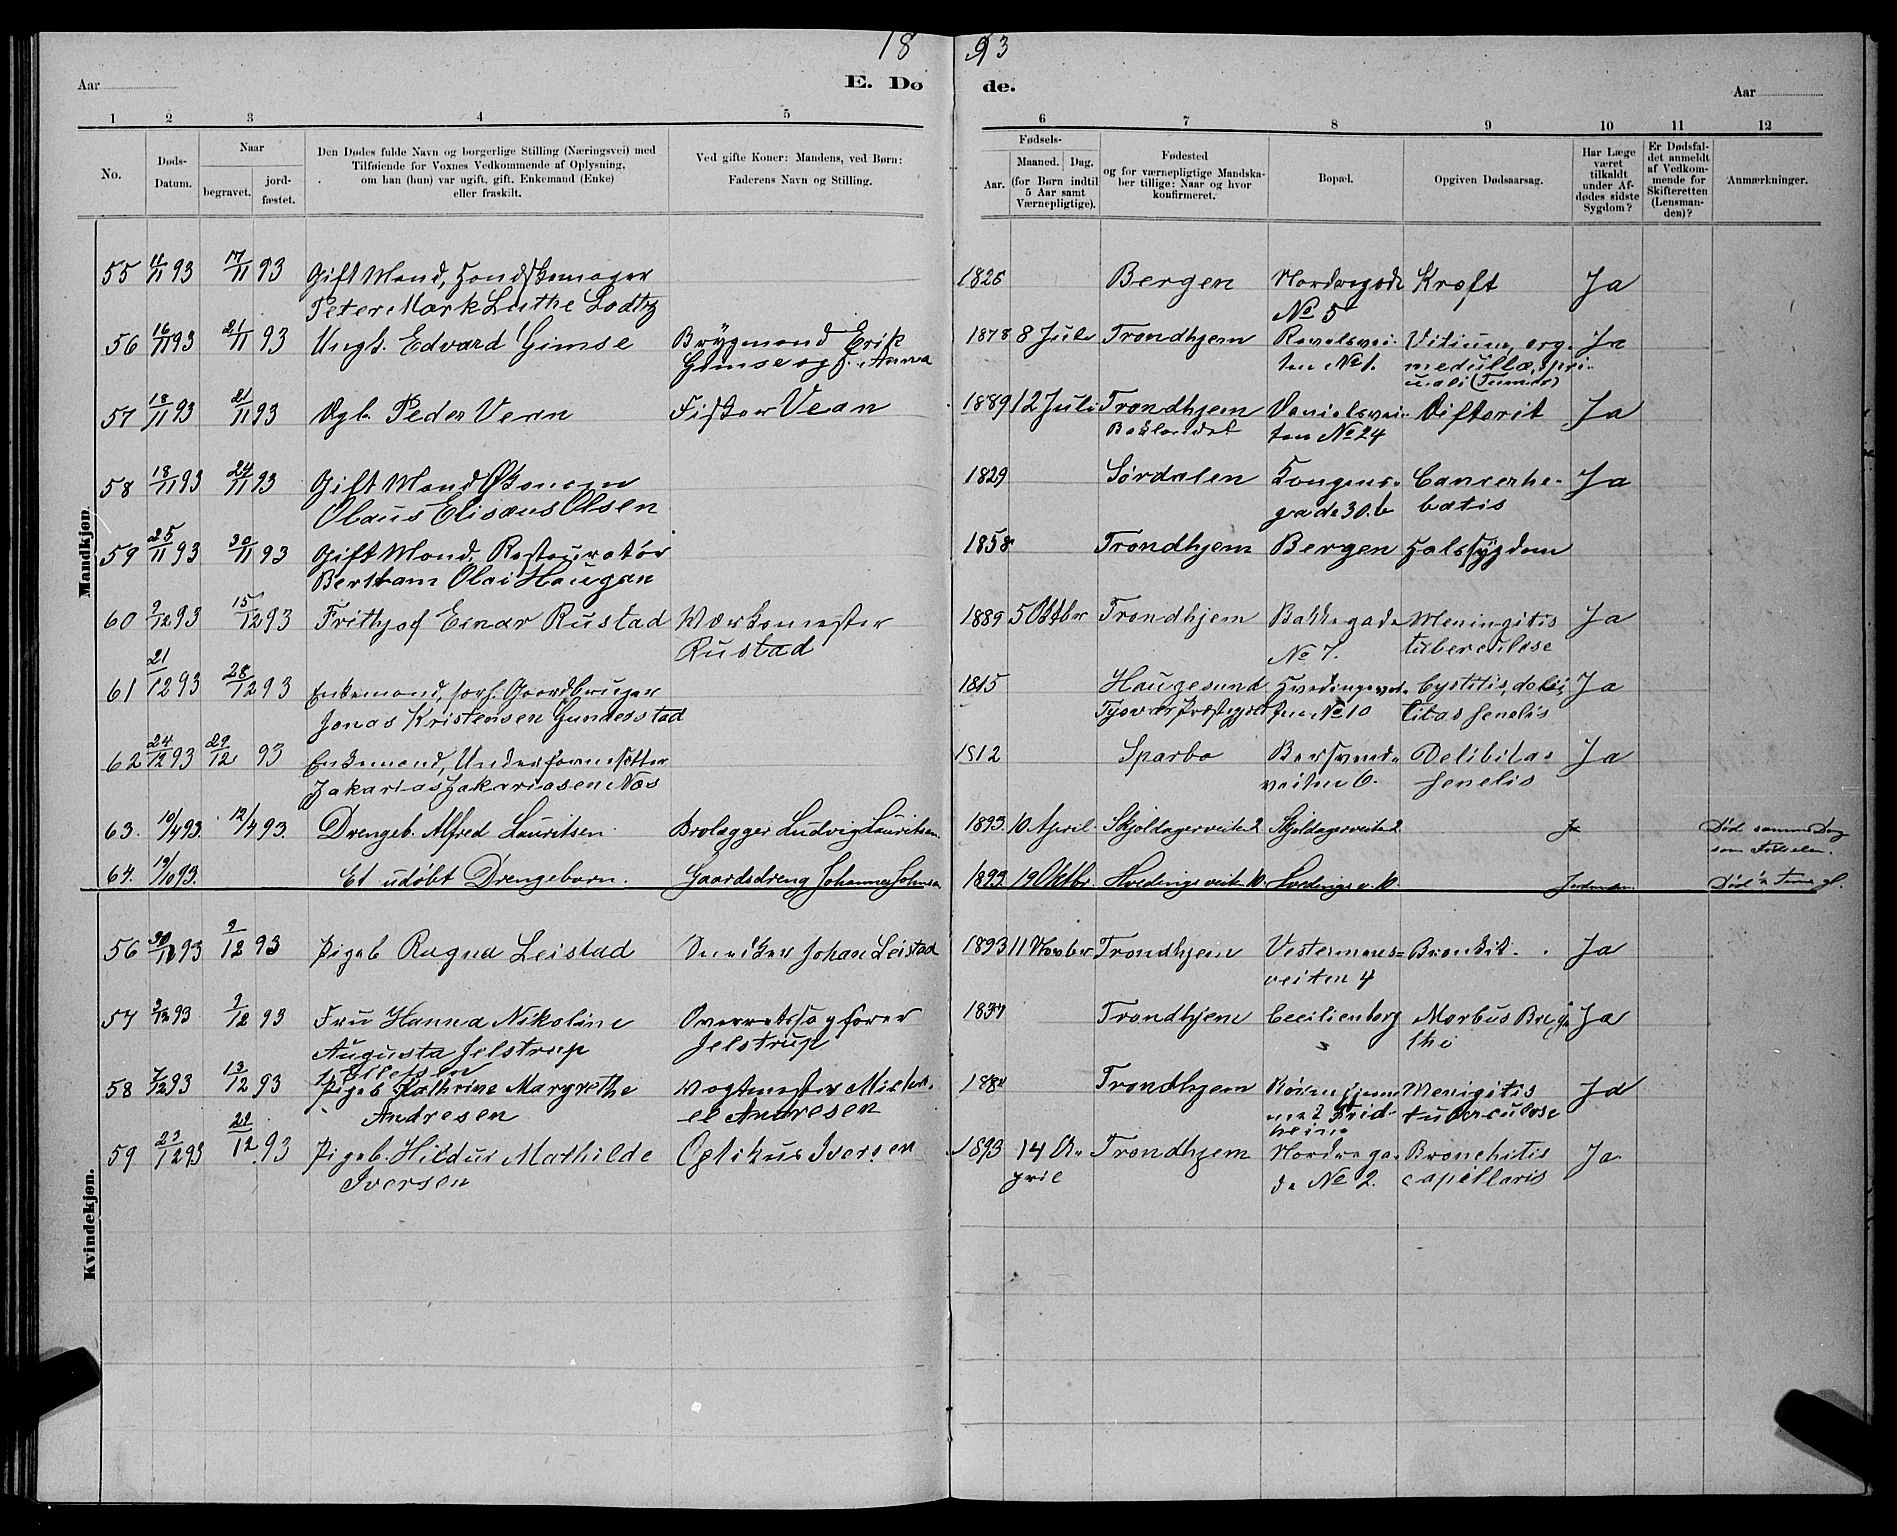 1893
Aar
E. Døde.
Aar
1 2 3 4 5 6 7 8 9 10 11 12
No.
Døds-Datum.
Naar
begravet.
jord-fæstet.
Den Dødes fulde Navn og borgerlige Stilling (Næringsvei) med
Tilføiende for Voxnes Vedkommende af Oplysning,
om han (hun) var ugift, gift, Enkemand (Enke)
eller fraskilt.
Ved gifte Koner: Mandens, ved Børn:
Faderens Navn og Stilling.
Fødsels-
Aar.
Maaned. Dag.
(for Børn indtil
5 Aar samt
Værnepligtige).
Fødested
og for værnepligtige Mandska-
ber tillige: Naar og hvor
konfirmeret.
Bopæl.
Opgiven Dødsaarsag.
Har Læge
været
tilkaldt
under Af-
dødes sidste
Sygdom?
Er Dødsfal-
det anmeldt
af Vedkom-
mende for
Skifteretten
(Lensman-
den)?
Anmærkninger.
Mandkjøn.
55 11/11 93 17/11 93 Gift Mand, Handskemager 1826 Bergen Nordregade Kræft Ja
Peter Mark Luthe Lodtz No 5
56 16/11 93 21/11 93 Ungk. Edvard Gimse Brygmand Erik 1878 8 Juli Trondhjem Ravelsvei- Vitium org. Ja
Gimse og H. Anna ten No 1. medullæ spi-
nali (Tumor)
57 18/11 93 21/11 93 Dgb. Peder Vean Fisker Vean 1889 12 Juli Trondhjem Danielsvei- Difterit Ja
Baklandet ten No 24
58 18/11 93 24/11 93 Gift Mand Økonom 1829 Sørdalen Kongens- Cancer he- Ja
Olaus Elisæus Olsen gade 30.b batis
59 25/11 93 30/11 93 Gift Mand, Restauratør 1858 Trondhjem Bergen Halssygdom
Bertram Olai Haugan
60 9/12 93 15/12 93 Frithjof Einar Rustad Værkmester 1889 5 Oktber Trondhjem Bakkegade Meningitis Ja
Rustad No 7. tuberculose
61 21/12 93 28/12 93 Enkemand, forh. Gaardbruger 1815 Haugesund Hvedingsvei- Cystitis, debi- Ja
Jonas Kristensen Gunderstad Tysvær Præstegjeld ten No 10 litas senelis
62 24/12 93 29/12 93 Enkemand, Underfournsetter 1812 Sparbo Bersvend- Delibitas Ja
Zakarias Zakariasen Næs veiten 6. senelis
63. 10/4 93. 12/4 93. Drengeb. Alfred Lauritsen. Brolægger Ludvig Lauritsen. 1893. 10 April Skjoldagerveite 2 Skjoldagerveite 2 Ja Død samme Dag
som Fødselen.
64. 19/10 93. Et udøbt Drengebarn. Gaardsdreng Johannes Johnsen 1893. 19 Oktbr. Hvedingsveiten 10. Hvedingsv. 10. Jordmoder Død
Kvindekjøn.
56 30/11 93 9/12 93 Pigeb Ragna Leistad Snedker Johan Leistad 1893 11 Novber Trondhjem Vestermans- Bronkit. Ja
veiten 4
57 3/12 93 9/12 93 Fru Hanna Nikoline Overretssagfører 1837 Trondhjem Cecilienborg Morbus Brig- Ja
Augusta Jelstrup Jelstrup thi
f. Ellefsen
58 7/12 93 13/12 93 Pigeb Kathrine Margrethe Vagtmester Mick- Trondhjem Børnehjem- Menigitis Ja
Andresen el Andresen met Frid- tuberculose
heim
59 23/12 93 29/12 93 Pigeb. Hildur Mathilde Optikus Iversen 1893 14 A- Trondhjem Nordrega- Bronchitis Ja
Iversen pril de No 2. capillaris